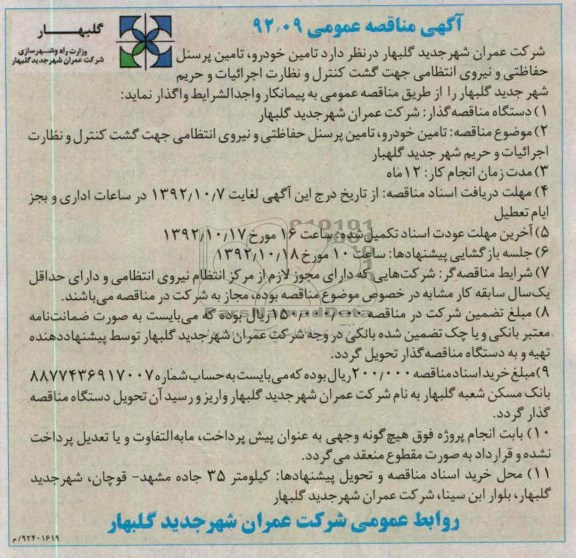 آگهی مناقصه عمومی ۹۲٫۰۹
گلبهار
وزارت راه و شهرسازی
شرکت عمران شهرجدید گلبهار
شرکت عمران شهرجدید گلبهار درنظر دارد تامین خودرو، تامین پرسنل
حفاظتی و نیروی انتظامی جهت گشت کنترل و نظارت اجرائیات و حریم
شهر جدید گلبهار را از طریق مناقصه عمومی به پیمانکار واجدالشرایط واگذار نماید:
۱) دستگاه مناقصه‌گذار: شرکت عمران شهرجدید گلبهار
۲) موضوع مناقصه: تامین خودرو، تامین پرسنل حفاظتی و نیروی انتظامی جهت گشت کنترل و نظارت
اجرائیات و حریم شهر جدید گلبهار
۳) مدت زمان انجام کار: ۱۲ماه
۴) مهلت دریافت اسناد مناقصه: از تاریخ درج این آگهی لغایت ۱۳۹۲٫۱۰٫۷ در ساعات اداری و بجز
ایام تعطیل
۵) آخرین مهلت عودت اسناد تکمیل شده: ساعت ۱۶ مورخ ۱۳۹۲٫۱۰٫۱۷
۶) جلسه بازگشایی پیشنهادها: ساعت ۱۰ مورخ ۱۳۹۲٫۱۰٫۱۸
۷) شرایط مناقصه‌گر: شرکت‌هایی که دارای مجوز لازم از مرکز انتظام نیروی انتظامی و دارای حداقل
یک‌سال سابقه کار مشابه در خصوص موضوع مناقصه بوده، مجاز به شرکت در مناقصه می‌باشند.
۸) مبلغ تضمین شرکت در مناقصه ۱۵۰٫۰۰۰٫۰۰۰ریال بوده که می‌بایست به صورت ضمانت‌نامه
معتبر بانکی و یا چک تضمین شده بانکی در وجه شرکت عمران شهرجدید گلبهار توسط پیشنهاددهنده
تهیه و به دستگاه مناقصه‌گذار تحویل گردد.
۹)مبلغ خرید اسناد مناقصه ۲۰۰٫۰۰۰ریال بوده که می‌بایست به حساب شماره ۸۸۷۷۴۳۶۹۱۷۰۰۷
بانک مسکن شعبه گلبهار به نام شرکت عمران شهر جدید گلبهار واریز و رسید آن تحویل دستگاه مناقصه
گذار گردد.
۱۰) بابت انجام پروژه فوق هیچ‌گونه وجهی به عنوان پیش پرداخت، مابه‌التفاوت و یا تعدیل پرداخت
نشده و قرارداد به صورت مقطوع منعقد می‌گردد.
۱۱) محل خرید اسناد مناقصه و تحویل پیشنهادها: کیلومتر ۳۵ جاده مشهد- قوچان، شهرجدید
گلبهار، بلوار ابن سینا، شرکت عمران شهرجدید گلبهار
روابط عمومی شرکت عمران شهرجدید گلبهار
۹۲۴۰۱۶۱۹/م